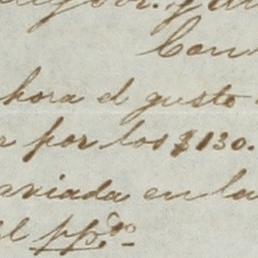 Con
hora el gusto
r por los $130.
aviada en la
el pp.do